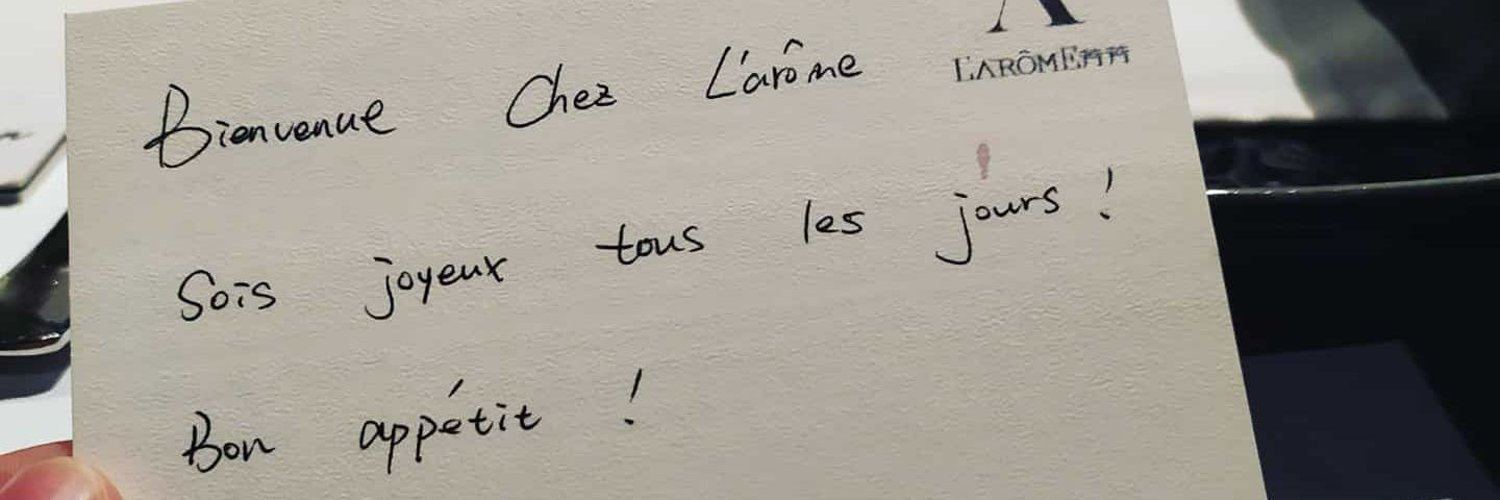 L'ARÔME芛芛
Bienvenue Chez L'arôme
Sois joyeux tous les jours !
Bon appétit !